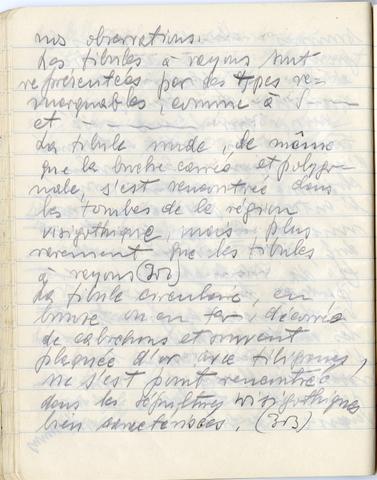 nos observations.
Les fibules à rayons sont
représentées par des types re-
marquables, comme à S — —
et — — — — —
La fibule ronde, de même
que la boucle carrée et polygo-
nale, s'est rencontrée dans
les tombes de la région
visigothique, mais plus
rarement que les fibules
à rayons (302)
La fibule circulaire, en
bronze ou en fer, décorée
de cabochons et souvent
plaquée d'or avec filigranes,
ne s'est point rencontrée
dans les sépultures wisigothiques
bien caractérisées. (303)